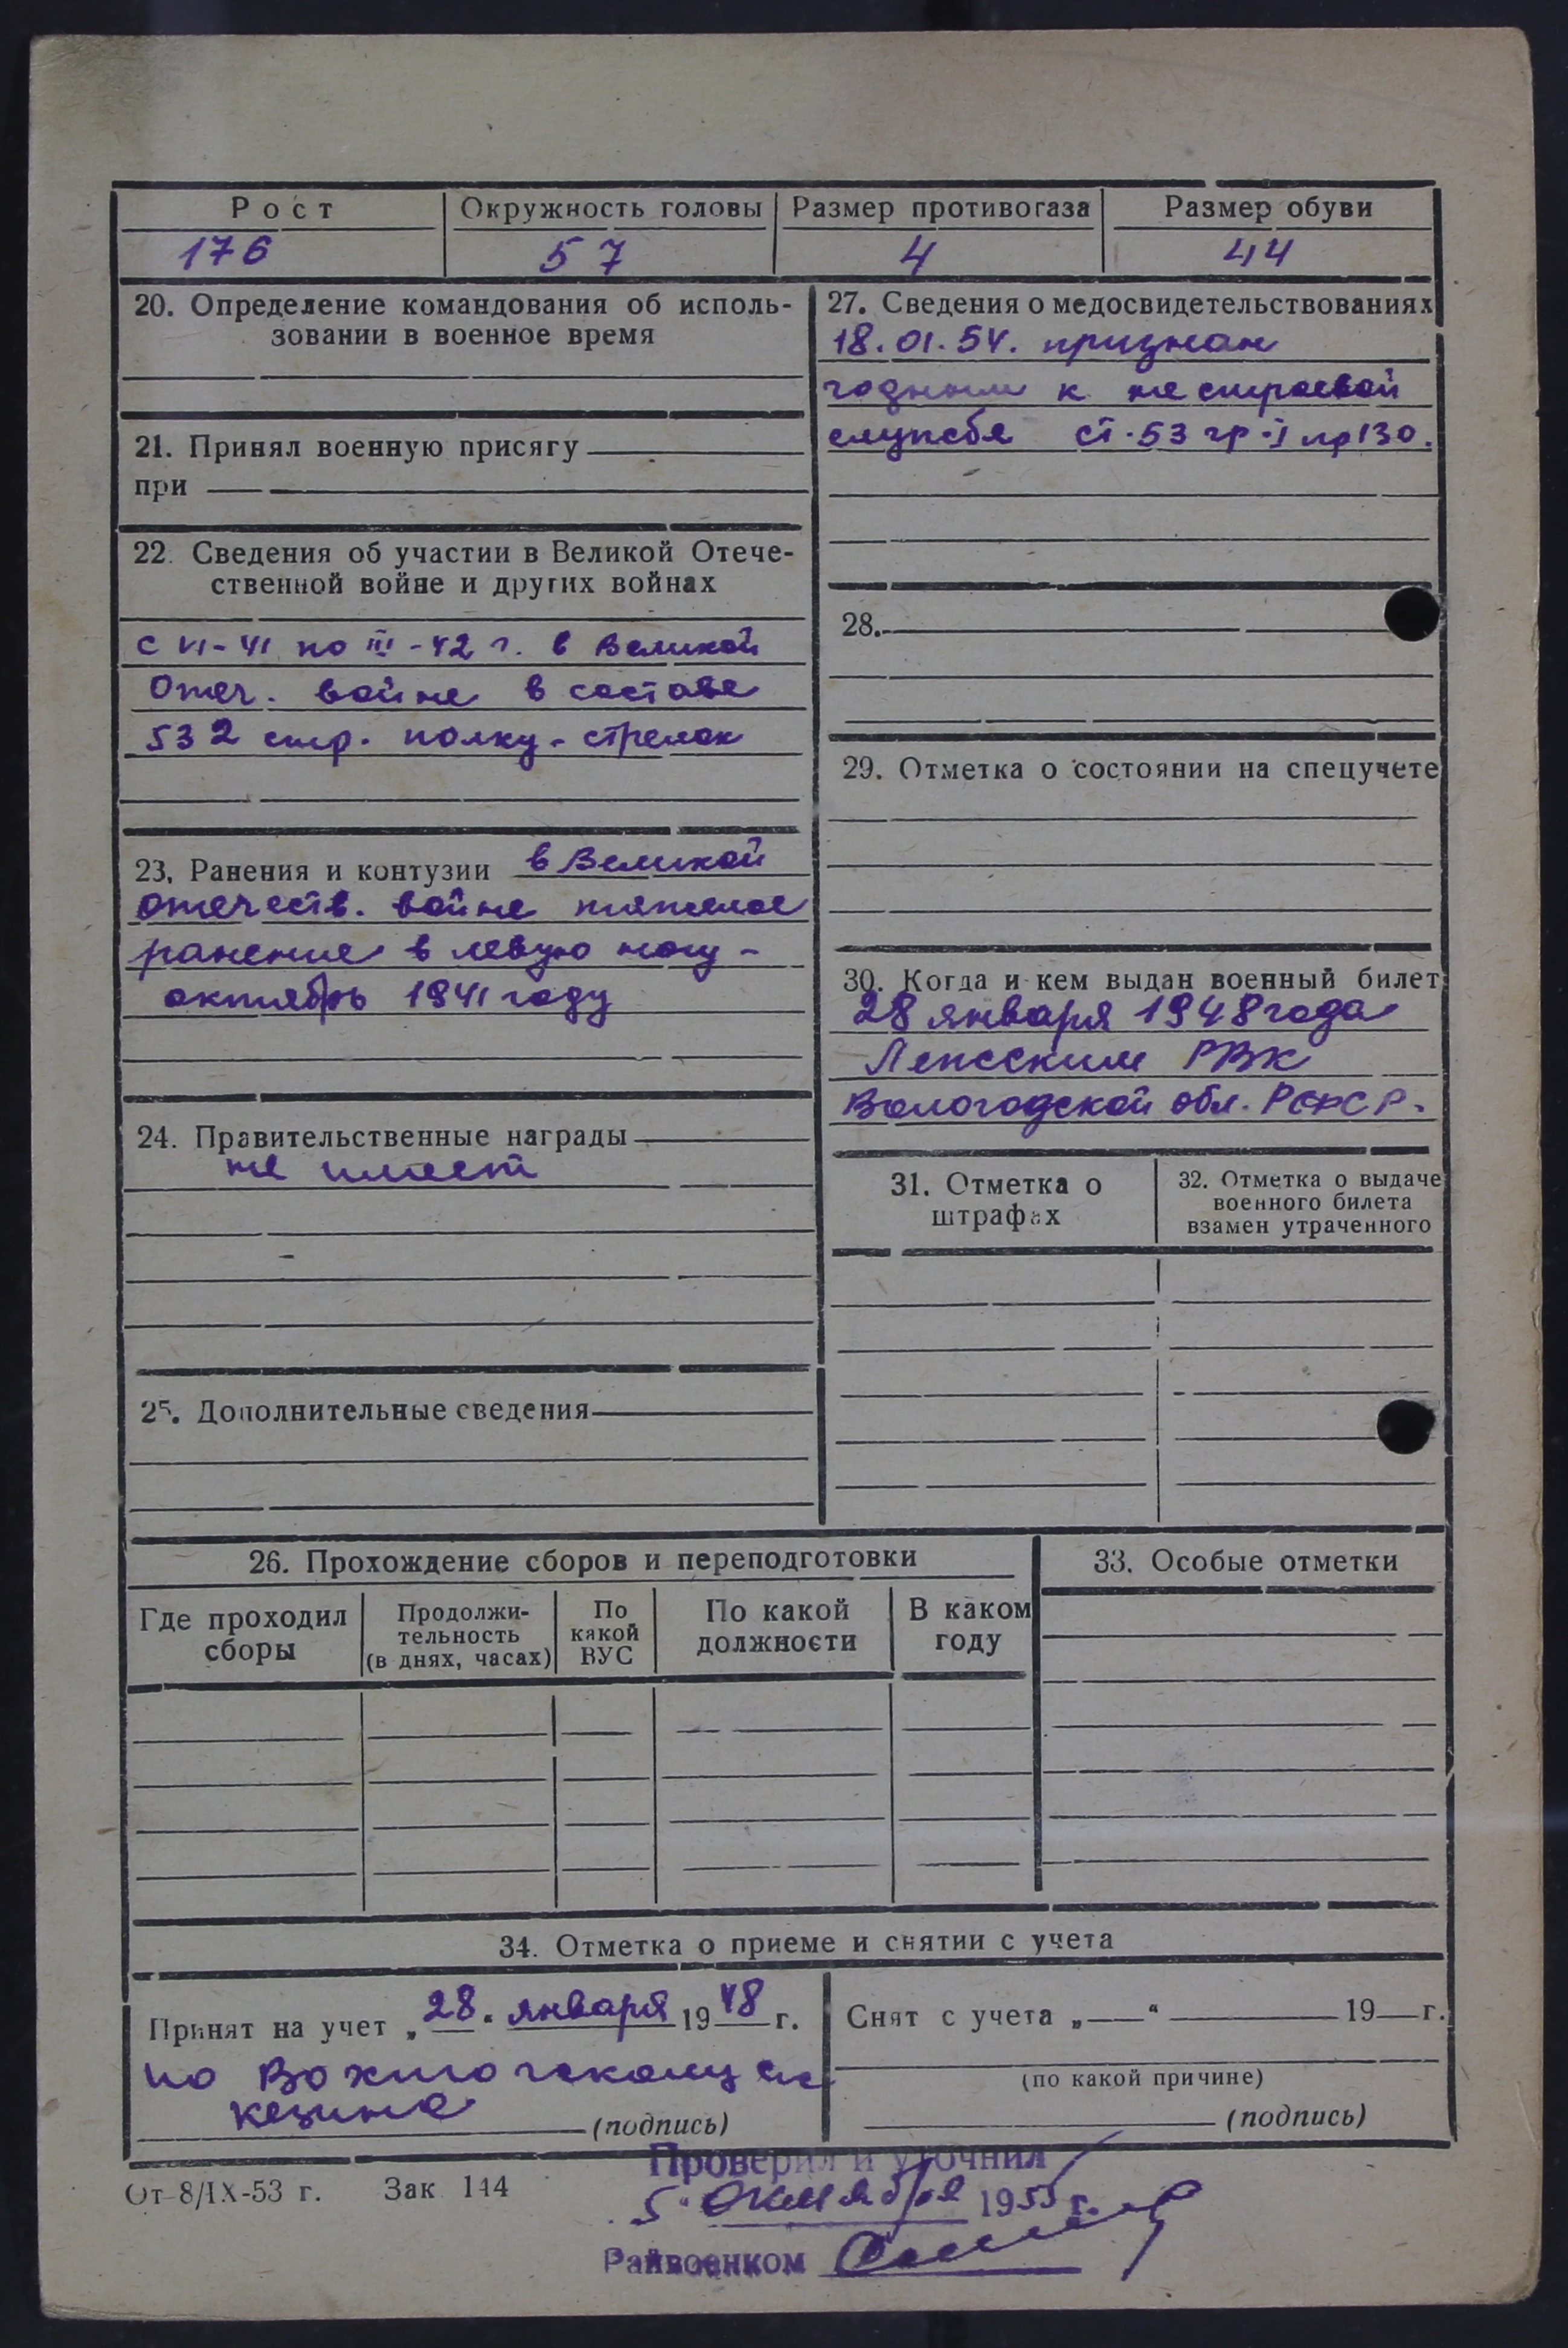 Рост Окружность головы Размер противогаза Размер обуви
176 57 4 44
20. Определение командования об исполь-
зовании в военное время
21. Принял военную присягу
при
22. Сведения об участии в Великой Отече-
ственной войне и других войнах
с VI-41 по III-42 г. в Великой
Отеч. войне в составе
532 стр. полку - стрелок
23. Ранения и контузии в Великой
отечеств. войне тяжелое
ранение в левую ногу -
октябрь 1941 году
24. Правительственные награды
не имеет
25. Дополнительные сведения
27. Сведения о медосвидетельствованиях
18.01.54. признан
годным к не строевой
службе ст. 53 гр. I пр 130.
28.
29. Отметка о состоянии на спецучете
30. Когда и кем выдан военный билет
28 января 1948 года
РВК
Вологодской обл. РСФСР.
31. Отметка о
штрафах
32. Отметка о выдаче
военного билета
взамен утраченного
26. Прохождение сборов и переподготовки
Где проходил
сборы
Продолжи-
тельность
(в днях, часах)
По
какой
ВУС
По какой
должности
В каком
году
33. Особые отметки
34. Отметка о приеме и снятии с учета
Принят на учет „28" января 1948 г.
по
(подпись)
Снят с учета „ " 19 г.
(по какой причине)
(подпись)
От 8/IX-53 г. Зак 144
Проверил и уточнил
5 " октября 1955 г.
Райвоенком